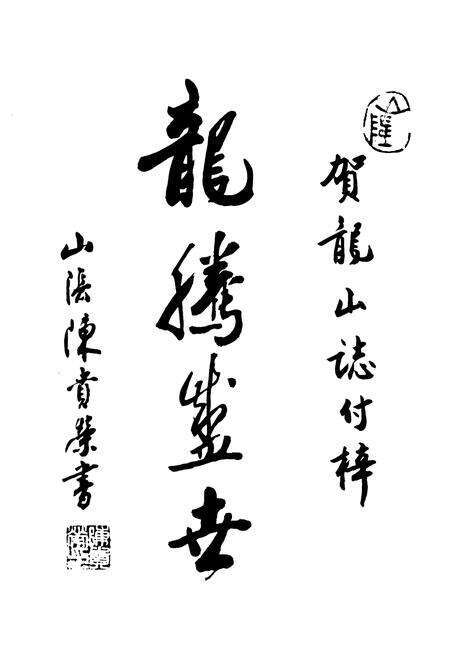 賀龍山誌付梓
龍騰盛世
山陰陳貴榮書